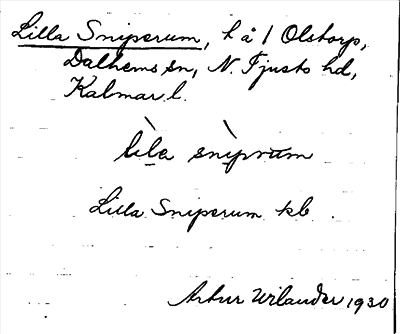 Lilla Sniperum, h å 1 Olstorp,
Dalhems sn, N. Tjusts hd,
Kalmar l.
lìla snìprum
Lilla Sniperum kb
Arthur Wilander 1930